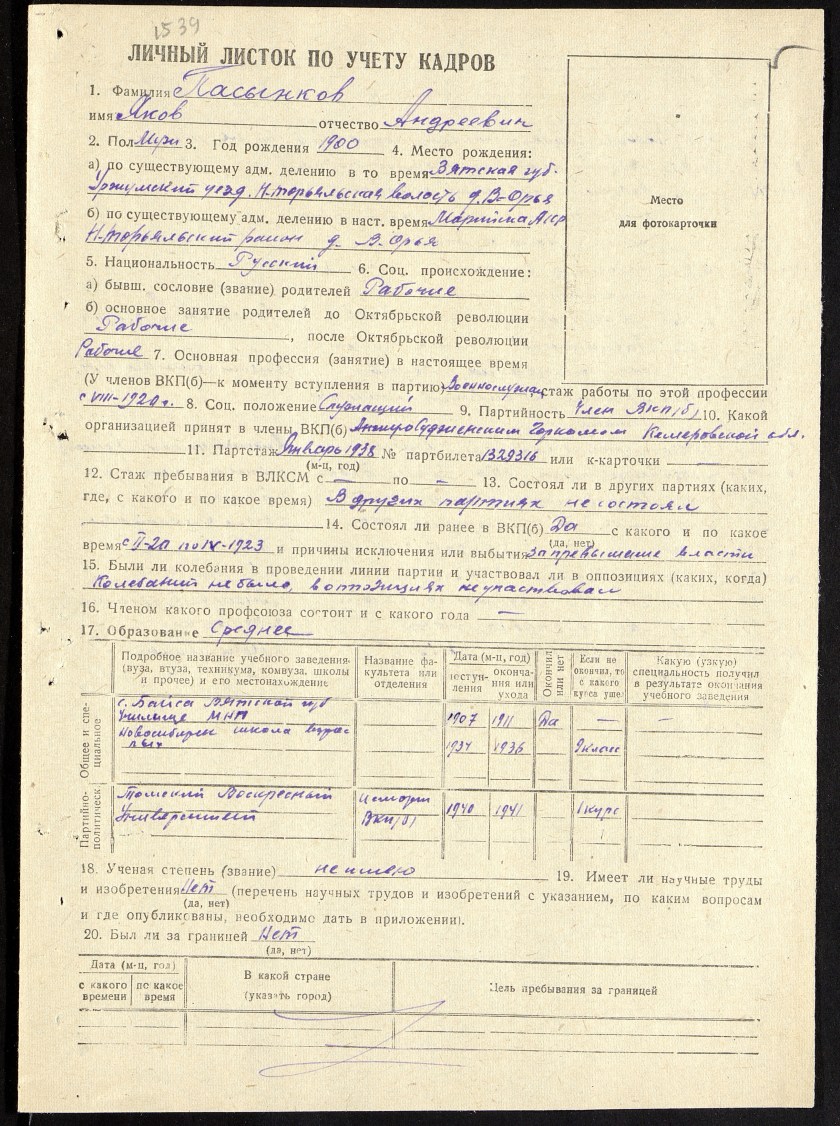 1539
ЛИЧНЫЙ ЛИСТОК ПО УЧЕТУ КАДРОВ
1. Фамилия Пасынков
имя Яков отчество Андреевич
2. Пол Муж 3. Год рождения 1900 4. Место рождения:
а) по существующему адм. делению в то время Вятская губ.
Уржумский уезд. Н-Торьяльская волость д. В-Орья
б) по существующему адм. делению в наст. время Марийска Асср
Н-Торьяльский район д. В. Орья
5. Национальность Русский 6. Соц. происхождение:
а) бывш. сословие (звание) родителей Рабочие
б) основное занятие родителей до Октябрьской революции
Рабочие, после Октябрьской революции
Рабочие 7. Основная профессия (занятие) в настоящее время
(У членов ВКП(б)—к моменту вступления в партию) Военнослужащ стаж работы по этой профессии
с VIII-1920 г. 8. Соц. положение Служащий 9. Партийность Член ВКП(б) 10. Какой
организацией принят в члены ВКП(б) Анжеро Судженским Горкомом Кемеровской обл.
11. Партстаж Январь 1938 № партбилета 1329316 или к-карточки —
(м-ц, год)
12. Стаж пребывания в ВЛКСМ с — по — 13. Состоял ли в других партиях (каких,
где, с какого и по какое время) В других партиях не состоял
14. Состоял ли ранее в ВКП(б) Да с какого и по какое
(да, нет)
время с II-20 по IX-1923 и причины исключения или выбытия за превышение власти
15. Были ли колебания в проведении линии партии и участвовал ли в оппозициях (каких, когда)
Колебаний не было, в оппозициях не участвовал
16. Членом какого профсоюза состоит и с какого года —
17. Образование Среднее
Подробное название учебного заведения (вуза, втуза, техникума, комвуза, школы и прочее) и его местонахождение
Название факультета или отделения
Дата (м-ц, год)
поступления
окончания или ухода
Окончил или нет
Если не окончил, то с какого курса ушел
Какую (узкую) специальность получил в результате окончания учебного заведения
Общее и специальное
с. Байса Вятской губ
Училище МНП 1907 1911 Да — —
Новосибирск школа взрос
лых 1934 1936 9 класс
Партийно-политическ.
Томский Воскресный История 1940 1941 1 курс
Университет ВКП(б)
18. Ученая степень (звание) не имею 19. Имеет ли научные труды
и изобретения Нет (перечень научных трудов и изобретений с указанием, по каким вопросам
(да, нет)
и где опубликованы, необходимо дать в приложении).
20. Был ли за границей Нет
(да, нет)
Дата (м-ц, год)
с какого времени
по какое время
В какой стране
(указать город)
Цель пребывания за границей
Место
для фотокарточки